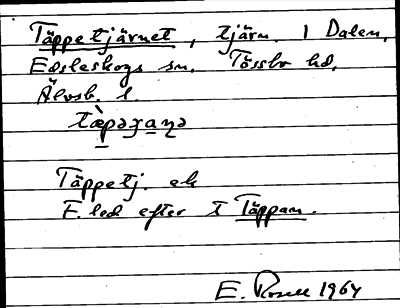 Täppetjärnet, tjärn. I Dalen,
Edsleskogs sn. Tössbo hd,
Älvsb. l.
Täppetj. ek
F. led efter t Täppan.
E. Rosell 1964